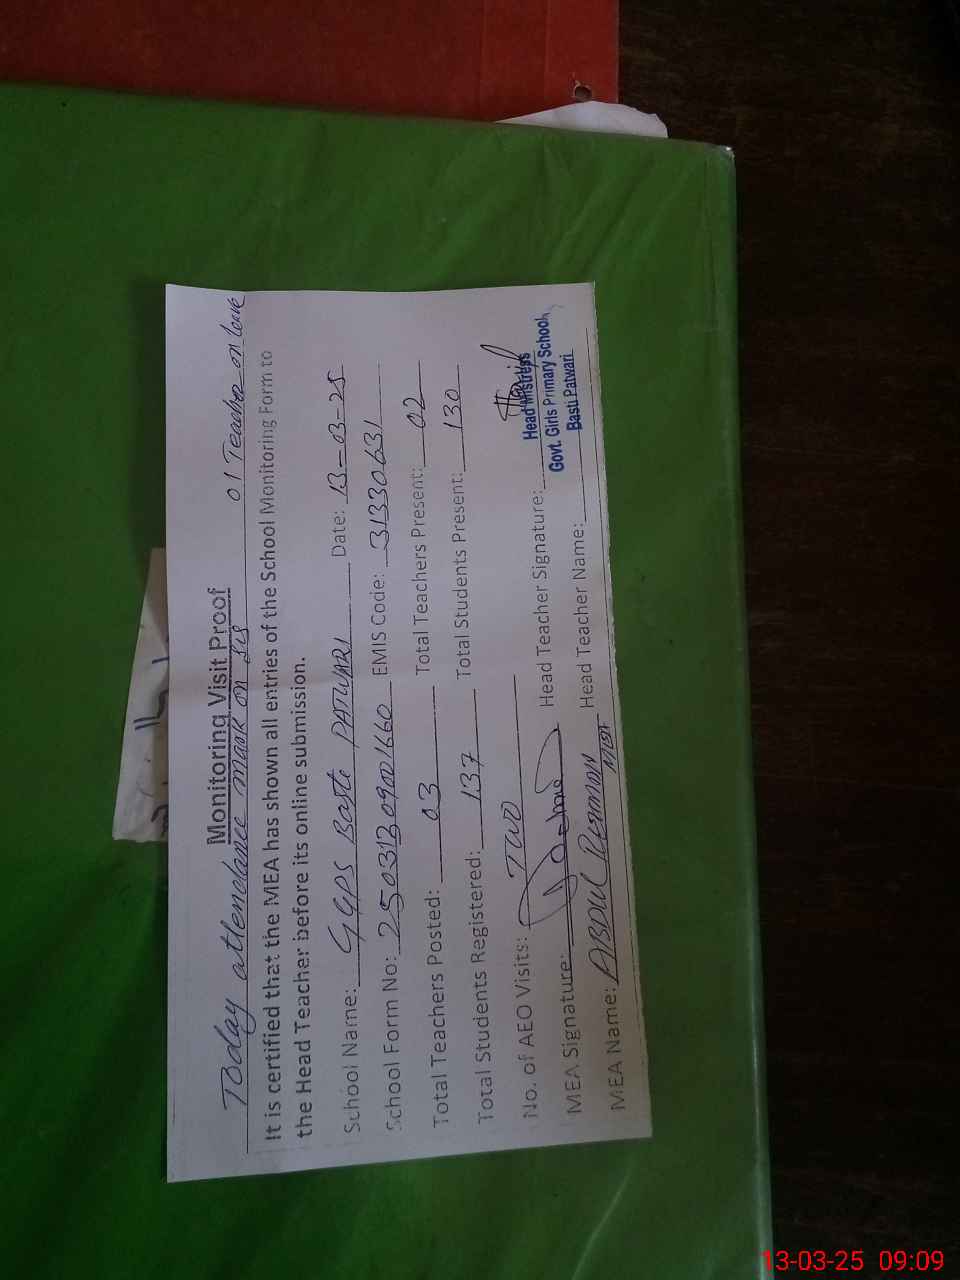 Monitoring Visit Proof
Today attendance mark on SIS 01 Teacher on leave
It is certified that the MEA has shown all entries of the School Monitoring Form to
the Head Teacher before its online submission.
School Name: GGPS Baste PATWARI Date: 13-03-25
School Form No: 250313090001660 EMIS Code: 31330631
Total Teachers Posted: 03 Total Teachers Present: 02
Total Students Registered: 137 Total Students Present: 130
No. of AEO Visits: TWO
MEA Signature: Head Teacher Signature:
Head Mistress
Govt. Girls Primary School
Basti Patwari
MEA Name: ABDUL REHMAN Head Teacher Name:
MEA
13-03-25 09:09